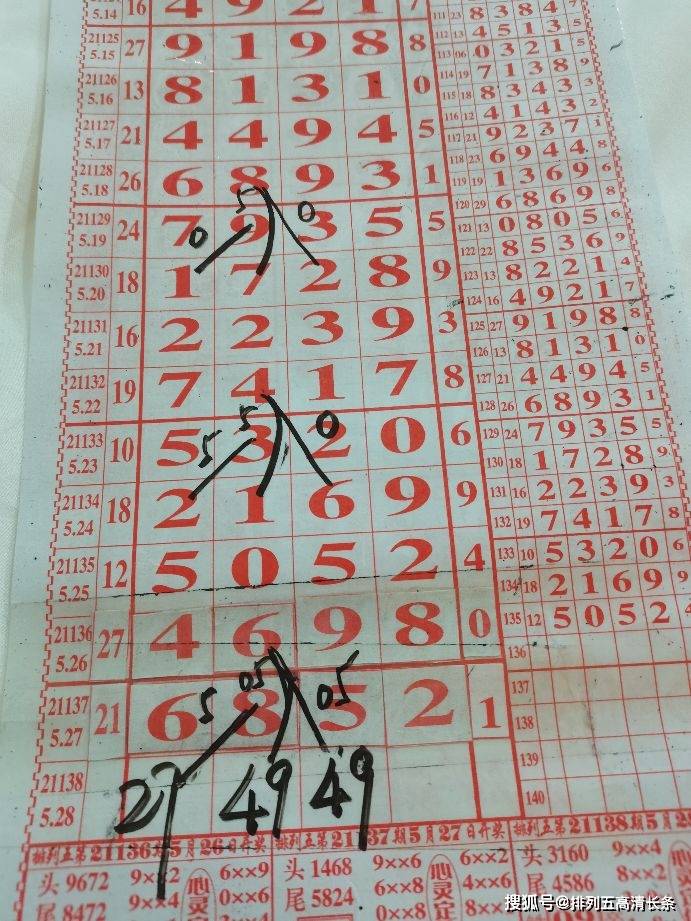 5.14 16 4 9 2 1 7
21125 5.15 27 9 1 9 8 8
21126 5.16 13 8 1 3 1 0
21127 5.17 21 4 4 9 4 5
21128 5.18 26 6 8 9 3 1
5 0
21129 5.19 24 7 9 3 5 5
0
21130 5.20 18 1 7 2 8 9
21131 5.21 16 2 2 3 9 3
21132 5.22 19 7 4 1 7 8
5 0
21133 5.23 10 5 3 2 0 6
5
21134 5.24 18 2 1 6 9 9
21135 5.25 12 5 0 5 2 4
21136 5.26 27 4 6 9 8 0
05 05
21137 5.27 21 6 8 5 2 1
5
21138 5.28
27 49 49
111 23 8 3 8 4 7
112 13 4 5 1 3 5
113 06 0 3 2 1 5
114 19 7 1 3 8 9
115 18 8 3 4 3 3
116 12 4 1 4 3 2
117 21 9 2 3 7 1
118 23 6 9 4 4 8
119 19 1 3 6 9 6
120 29 6 8 6 9 8
121 13 0 8 0 5 6
122 22 8 5 3 6 9
123 13 8 2 2 1 4
124 16 4 9 2 1 7
125 27 9 1 9 8 8
126 13 8 1 3 1 0
127 21 4 4 9 4 5
128 26 6 8 9 3 1
129 24 7 9 3 5 5
130 18 1 7 2 8 9
131 16 2 2 3 9 3
132 19 7 4 1 7 8
133 10 5 3 2 0 6
134 18 2 1 6 9 9
135 12 5 0 5 2 4
136
137
138
139
140
排列五第21136期5月26日开奖
头 9672 9××2 6××9
尾 8472 9××4 0××6
心灵
排列五第21137期5月27日开奖
头 1468 9××6 6××2
尾 5824 6××8 4××6
心灵
排列五第21138期5月28
头 3160 9××4
尾 4586 8××2
搜狐号@排列五高清长条